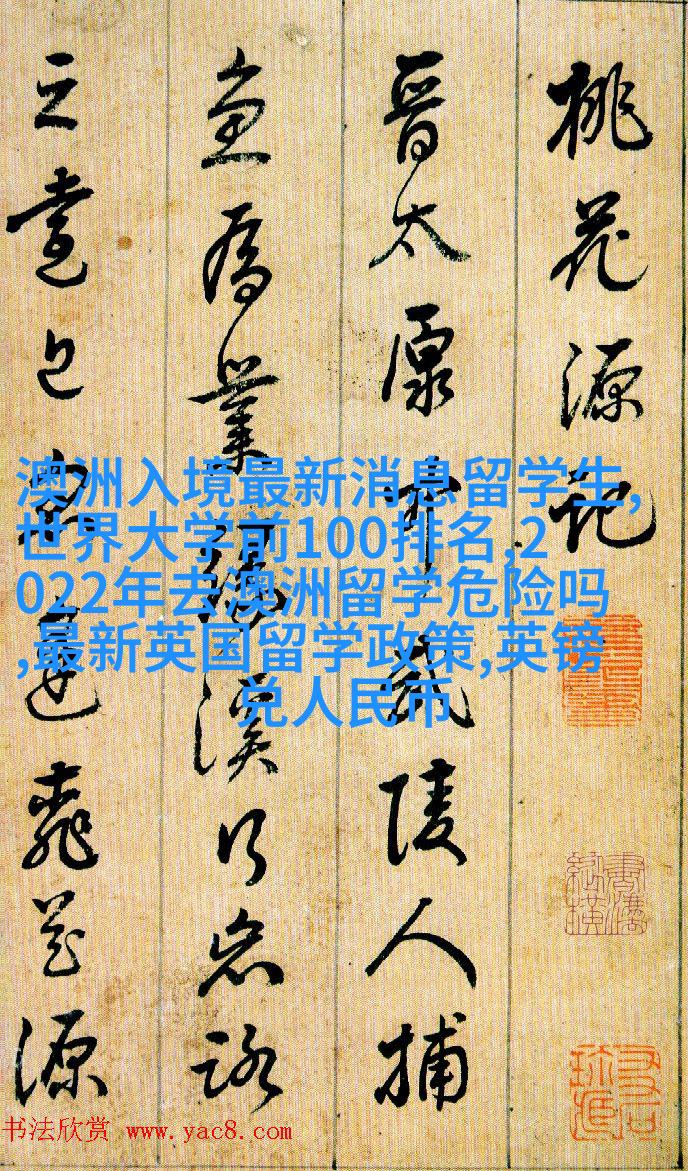 桃花源記
晉太原中武陵人捕
魚為業緣溪行忘路
之源
澳洲入境最新消息留学生,
世界大学前100排名,2
022年去澳洲留学危险吗
,最新英国留学政策,英镑
兑人民币
书法欣赏 www.yac8.com